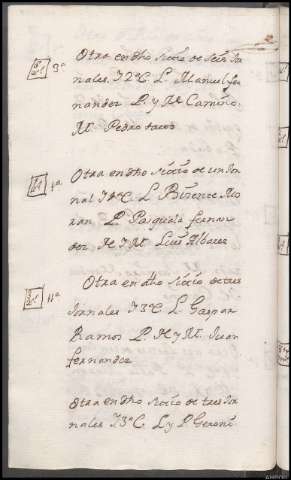 3ª Otra en dho sitio de seis Jor
nales. J 2ª C. L. Manuel fer
nandez P. y N. Camino.
M. Pedro
4ª Otra en dho sitio de un Jor
nal L. Bizente Mo
ran P. Pasquala fernan
dez N. J M. Luis Albarez
11ª Otra en dho sitio de tres
Jornales J 3ª C. L. Gaspar
Ramos P. N. y M. Juan
fernandez
Otra en dho sitio de tres Jor
nales J 3ª C. L y P. Geroni